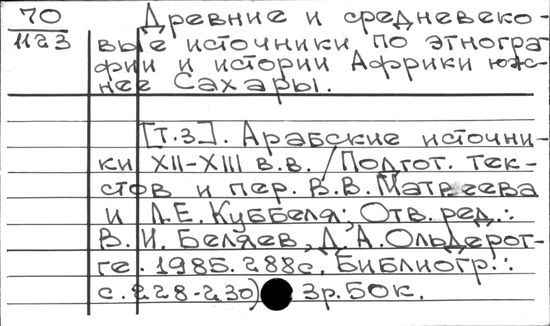 70
1123
Древние и средневеко-
вые источники по этногра-
фии и истории Африки юж-
нее Сахары.
[Т.3]. Арабские источни-
ки XII-XIII в.в. /Подгот. тек-
стов и пер. В.В. Матвеева
и Л.Е. Куббеля; Отв. ред.:
В.И. Беляев, Д.А. Ольдерог-
ге. 1985. 288с. Библиогр.:
с. 228-230) 3р. 50к.